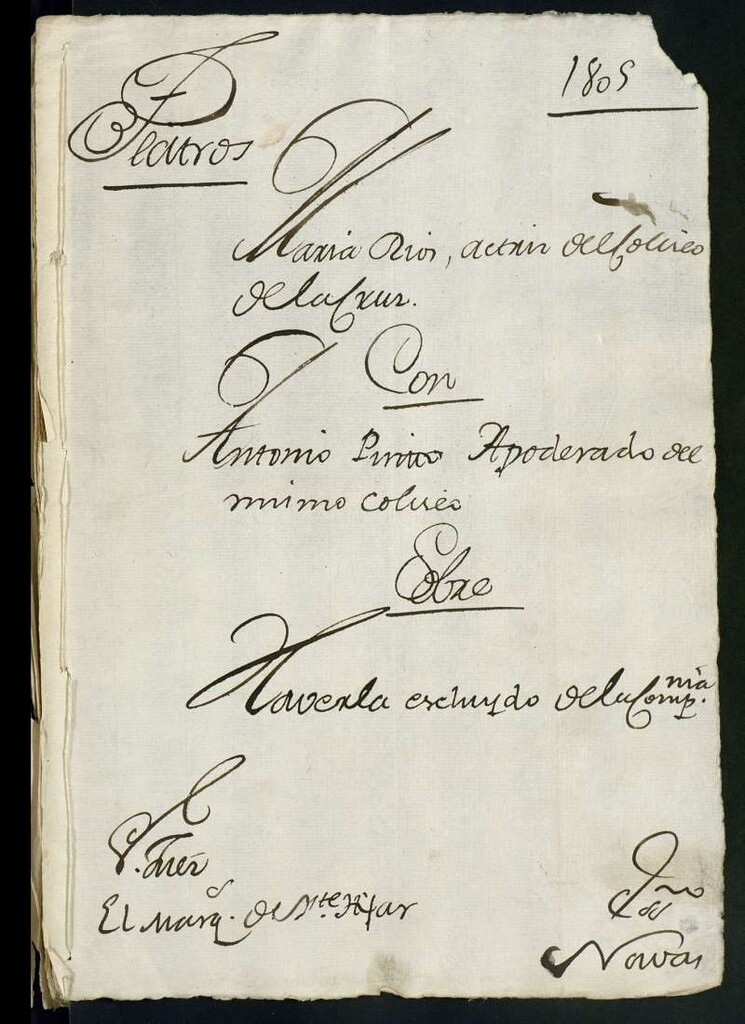 Teatros
1805
Maria Rios, actriz del Coliseo
de la Cruz.
Con
Antonio Pinto Apoderado del
mismo coliseo
Sobre
Haverla escluydo de la Comp.nia
S. Juez
El Marq.s de Mte Hijar
Novas